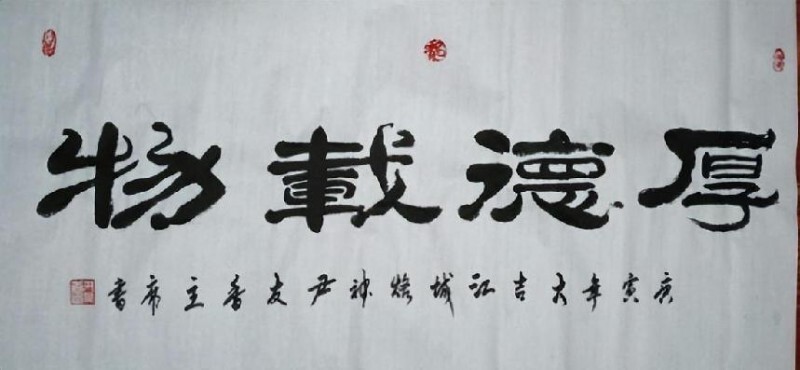 厚德載物
庚寅年大吉江城焓神尹友香主席書